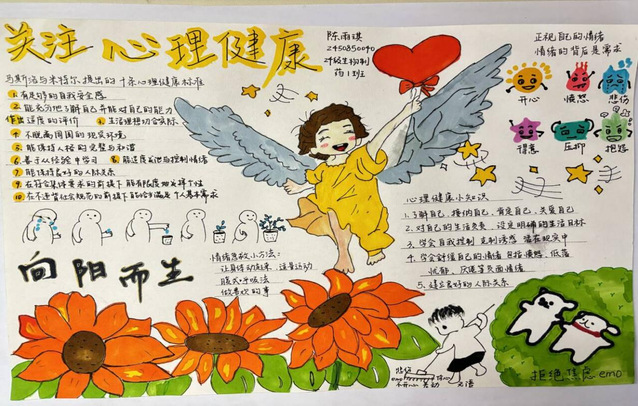 关注 心理健康
陈雨琪
2450850040
24级生物制
药1班
正视自己的情绪
情绪的背后是需求
开心 愤怒 悲伤
得意 压抑 抱怨
马斯洛与米特尔提出的十条心理健康标准
1、有足够的自我安全感
2、能充分地了解自己并能对自己的能力
作出适度的评价 3、生活理想切合实际
4、不脱离周围的现实环境
5、能保持人格的完整与和谐
6、善于从经验中学习 8、能适度地发泄和控制情绪
7、能保持良好的人际关系
9、在符合集体要求的前提下能有限度地发挥个性
10、在不违背社会规范的前提下能恰当满足个人基本需求
向阳而生
情绪急救小方法：
让身体动起来，这是运动
腹式呼吸法
做喜欢的事
心理健康小知识
1.了解自己，接纳自己，肯定自己，关爱自己
2.对自己的生活负责 设定明确的生活目标
3、学会自我控制 克制诱惑 活在现实中
4、学会舒缓自己的情绪 包括愤怒、低落
忧郁、厌恶等负面情绪
5、建立良好的人际关系
悲伤
不开心
拒绝焦虑 emo